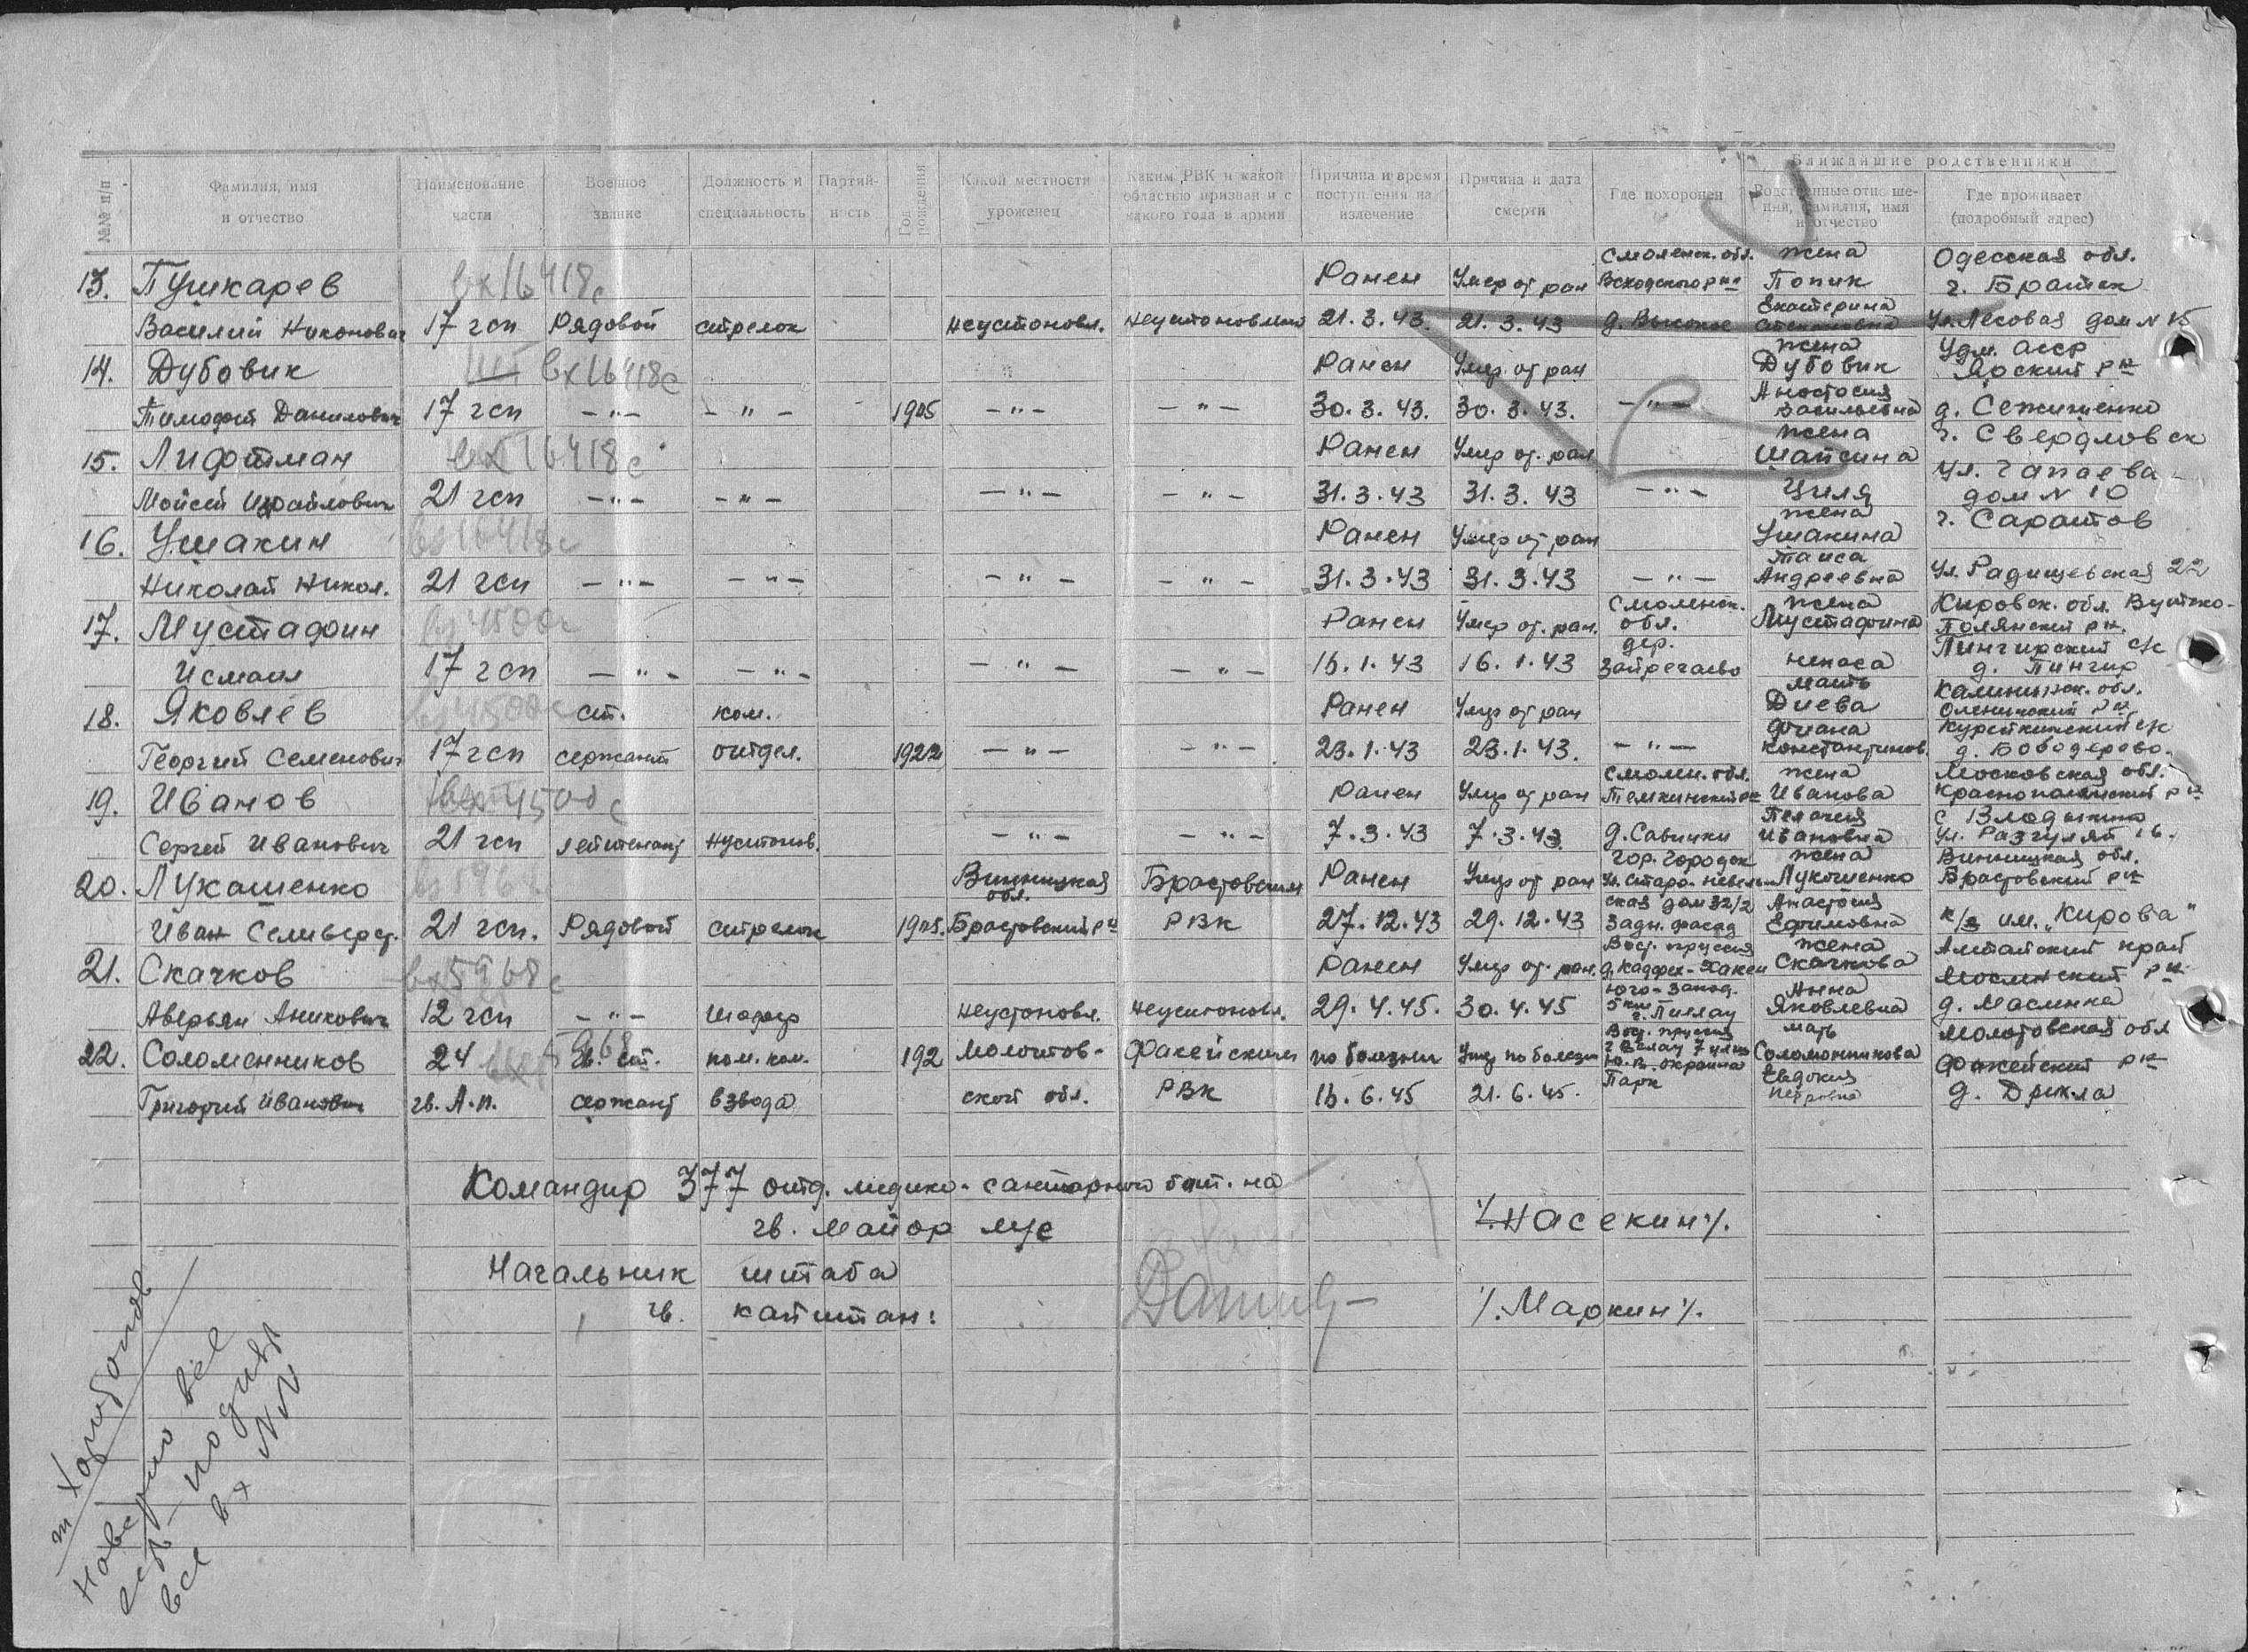 №№ п/п
Фамилия, имя и отчество
Наименование части
Военное звание
Должность и специальность
Партийность
Год рождения
Какой местности уроженец
Каким РВК и какой областью призван и с какого года в армии
Причина и время поступления на излечение
Причина и дата смерти
Где похоронен
Ближайшие родственники
Родственные отношения, фамилия, имя и отчество
Где проживает (подробный адрес)
13. Пушкарев вх 16418с Ранен Умер от ран Смоленск. обл. Всходского р-на жена Попик Одесская обл. г. Братск
Василий Никонович 17 гсп Рядовой стрелок неустановл. неустановлено 21.3.43. 21.3.43 д. Высокое Екатерина Степановна Ул. Лесовая дом № 15
14. Дубовик вх 16418с Ранен Умер от ран жена Дубовик Удм. АССР Ярский р-н
Тимофей Данилович 17 гсп —"— —"— 1905 —"— —"— 30.3.43. 30.3.43. —"— Анастасия Васильевна д.
15. Лифтман вх 16418с Ранен Умер от. ран жена Шапсина г. Свердловск
Мойсей Израйлович 21 гсп —"— —"— —"— —"— 31.3.43 31.3.43 —"— Циля ул. Чапаева дом № 10
16. Ушакин вх 16418с Ранен Умер от ран жена Ушакина г. Саратов
Николай Никол. 21 гсп —"— —"— —"— —"— 31.3.43 31.3.43 —"— Таиса Андреевна Ул. Радищевская 22
17. Мустафин вх 4500с Ранен Умер от. ран. Смоленск. обл. жена Мустафина Кировск. обл. Вятско-Полянский р-н.
Исмаил 17 гсп —"— —"— —"— —"— 16.1.43 16.1.43 дер. Зайречаево Пингирский с/с д. Пингир
18. Яковлев вх 4500с ст. ком. Ранен Умер от ран мать Диева Калининск. обл. Оленинский р-н
Георгий Семенович 17 гсп сержант отдел. 1922 —"— —"— 23.1.43 23.1.43. —"— Константинов. д.
19. Иванов вх 4500с Ранен Умер от ран Смолен. обл. Темкинский р-н жена Иванова Московская обл. Краснополянский р-н
Сергей Иванович 21 гсп лейтенант Неустанов. —"— —"— 7.3.43 7.3.43 д. Савинки Пелагея Ивановна с Владыкино ул. Разгуляй 16.
20. Лукашенко Винницкая обл. Брастовским Ранен Умер от ран гор. Городок Ул. Старо-Невель- жена Лукашенко Винницкая обл. Брастовский р-н
Иван Селиверст. 21 гсп. Рядовой стрелок 1905. Брастовский р-н РВК 27.12.43 29.12.43 ская дом 32/2 Задн. фасад Анастасия Ефимовна к/з им. „Кирова"
21. Скачков вх 5968с Ранен Умер от. ран. Вост. Пруссия жена Скачкова Алтайский край р-н
Аверьян Аникович 12 гсп —"— Шофер Неустановл. Неустановл. 29.4.45. 30.4.45 юго-запад. 5 км г. Пиллау Анна Яковлевна д. Маслинка
22. Соломенников 24 вх 5968 гв. ст. пом. ком. 192 Молотов- Фокейским по болезни Умер по болезни Вост. Пруссия мать Соломенникова Молотовская обл Фокейский р-н
Григорий Иванович гв. А.п. сержант взвода ской обл. РВК 16.6.45 21.6.45. Ю.В. окраина Парк Евдокия Петровна д.
Командир 377 отд. медико-санитарного бат.на
гв. майор м/с /.Насекин/.
Начальник штаба
гв. капитан: /.Маркин/.
т Харитонов
Наверно все
есть — по
все вх №№